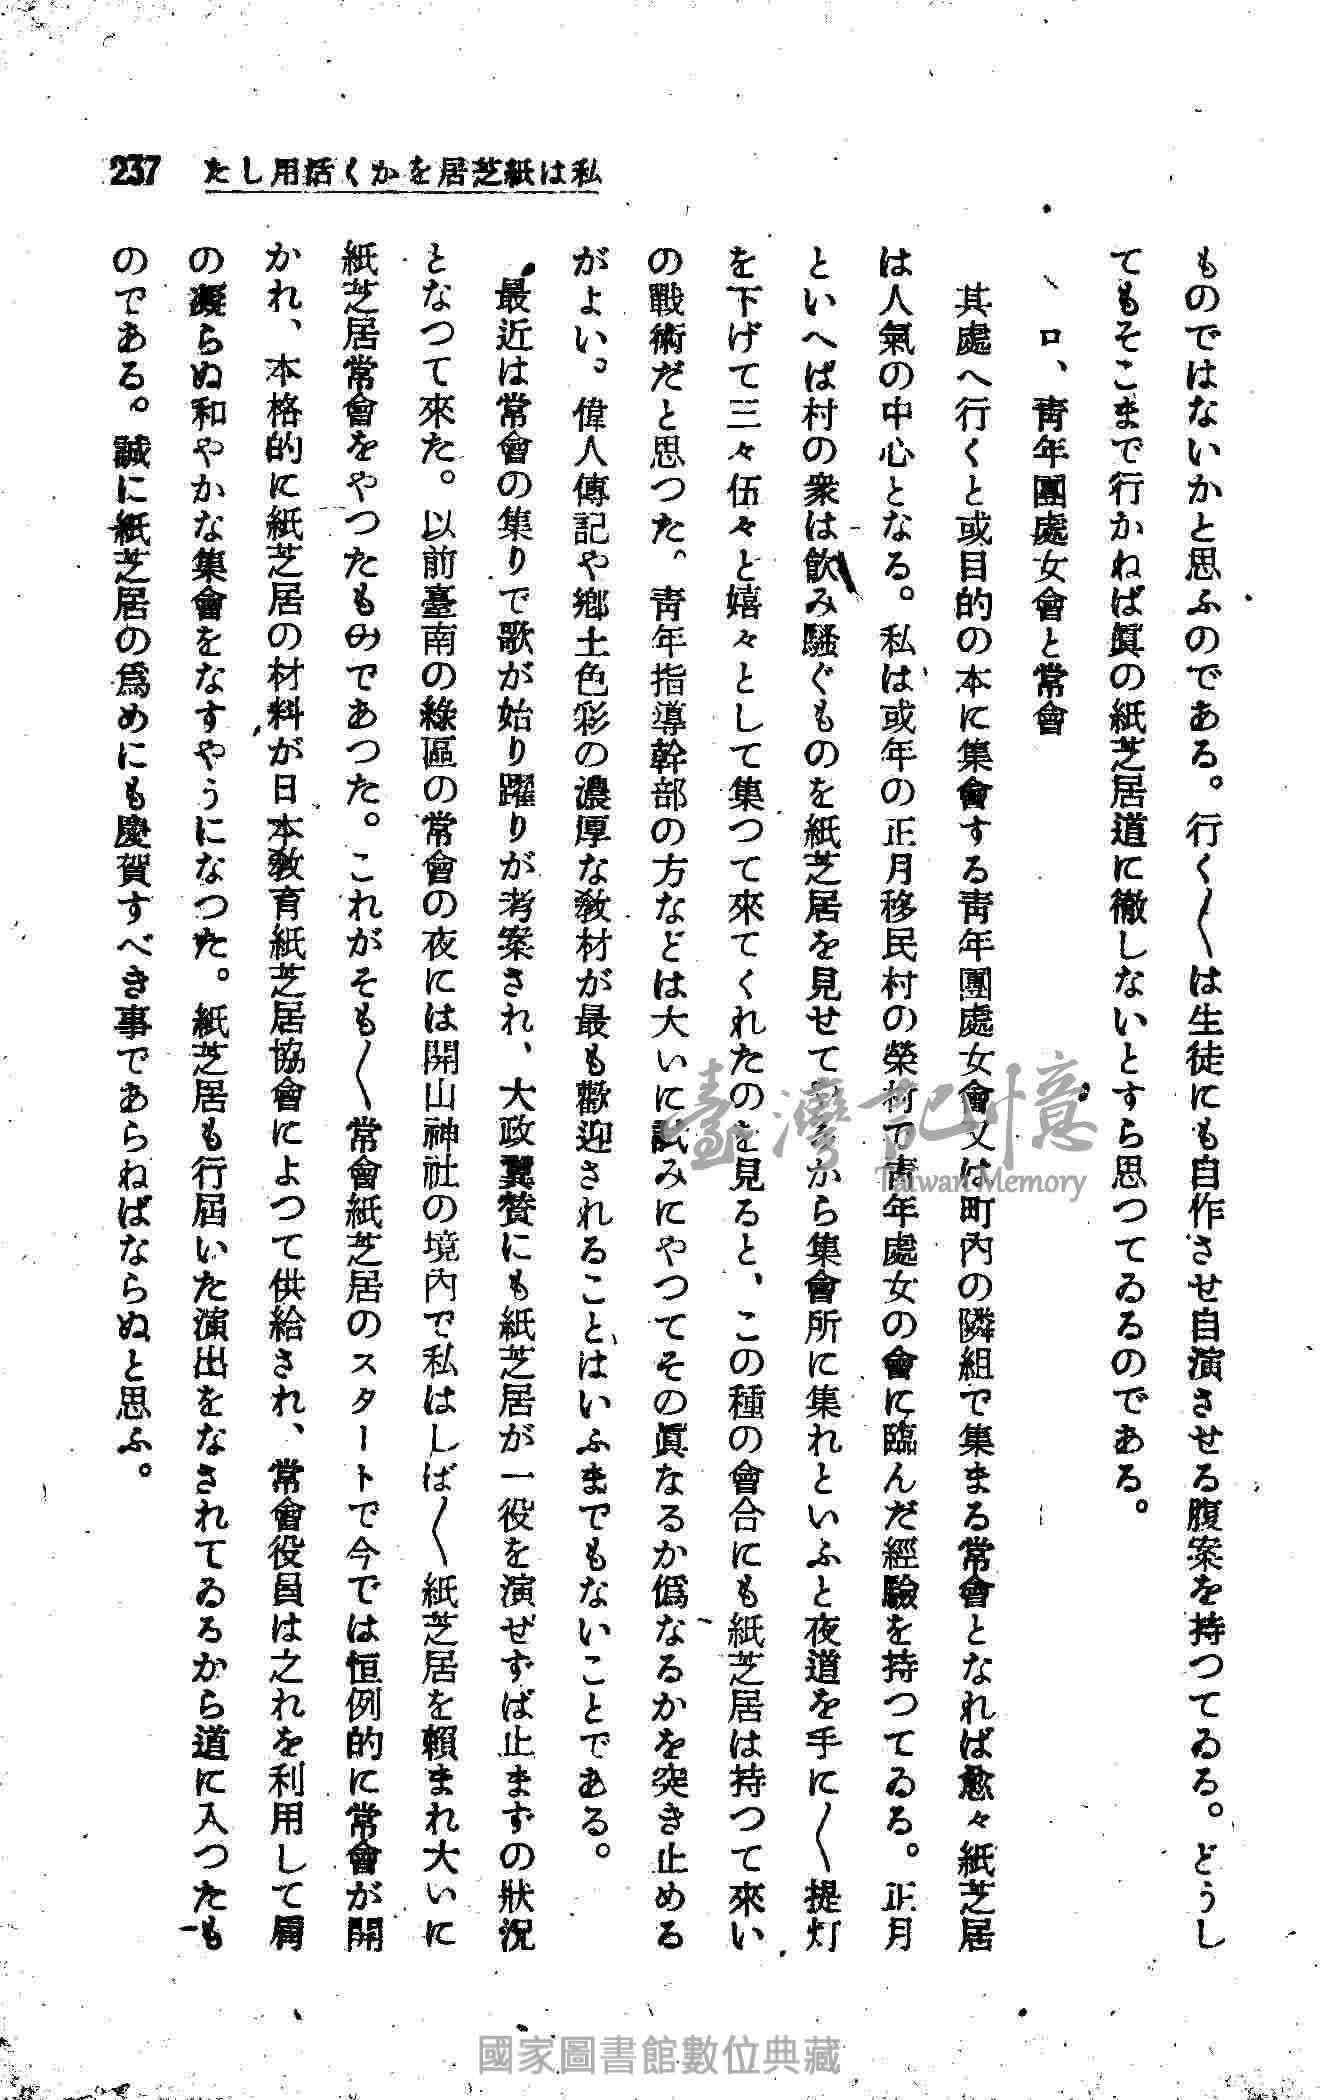 237 たし用活くかを居芝紙は私
ものではないかと思ふのである。行く〳〵は生徒にも自作させ自演させる腹案を持つてゐる。どうし
てもそこまで行かねば眞の紙芝居道に徹しないとすら思つてゐるのである。
ロ、靑年團處女會と常會
其處へ行くと或目的の本に集會する靑年團處女會又は町內の隣組で集まる常會となれば愈々紙芝居
は人氣の中心となる。私は或年の正月移民村の榮村で靑年處女の會に臨んだ經驗を持つてゐる。正月
といへば村の衆は飮み騷ぐものを紙芝居を見せてやるから集會所に集れといふと夜道を手に〳〵提灯
を下げて三々伍々と嬉々として集つて來てくれたのを見ると、この種の會合にも紙芝居は持つて來い
の戰術だと思つた。靑年指導幹部の方などは大いに試みにやつてその眞なるか僞なるかを突き止める
がよい。偉人傳記や鄕土色彩の濃厚な敎材が最も歡迎されることはいふまでもないことである。
最近は常會の集りで歌が始り躍りが考案され、大政翼贊にも紙芝居が一役を演ぜずば止まずの狀況
となつて來た。以前臺南の綠區の常會の夜には開山神社の境內で私はしば〳〵紙芝居を賴まれ大いに
紙芝居常會をやつたものであつた。これがそも〳〵常會紙芝居のスタートで今では恒例的に常會が開
かれ、本格的に紙芝居の材料が日本敎育紙芝居協會によつて供給され、常會役員は之れを利用して肩
の凝らぬ和やかな集會をなすやうになつた。紙芝居も行屆いた演出をなされてゐるから道に入つたも
のである。誠に紙芝居の爲めにも慶賀すべき事であらねばならぬと思ふ。
臺灣記憶
Taiwan Memory
國家圖書館數位典藏